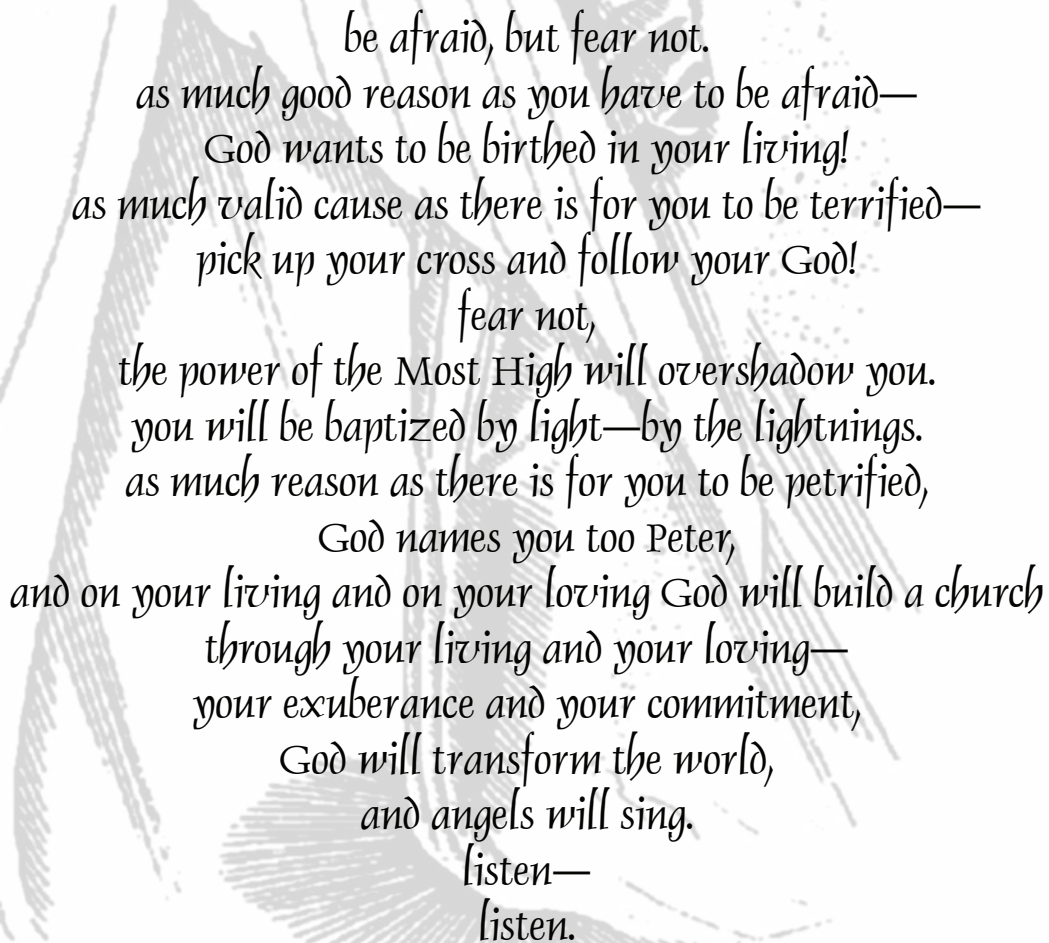 be afraid, but fear not.
as much good reason as you have to be afraid—
God wants to be birthed in your living!
as much valid cause as there is for you to be terrified—
pick up your cross and follow your God!
fear not,
the power of the Most High will overshadow you.
you will be baptized by light—by the lightnings.
as much reason as there is for you to be petrified,
God names you too Peter,
and on your living and on your loving God will build a church
through your living and your loving—
your exuberance and your commitment,
God will transform the world,
and angels will sing.
listen—
listen.